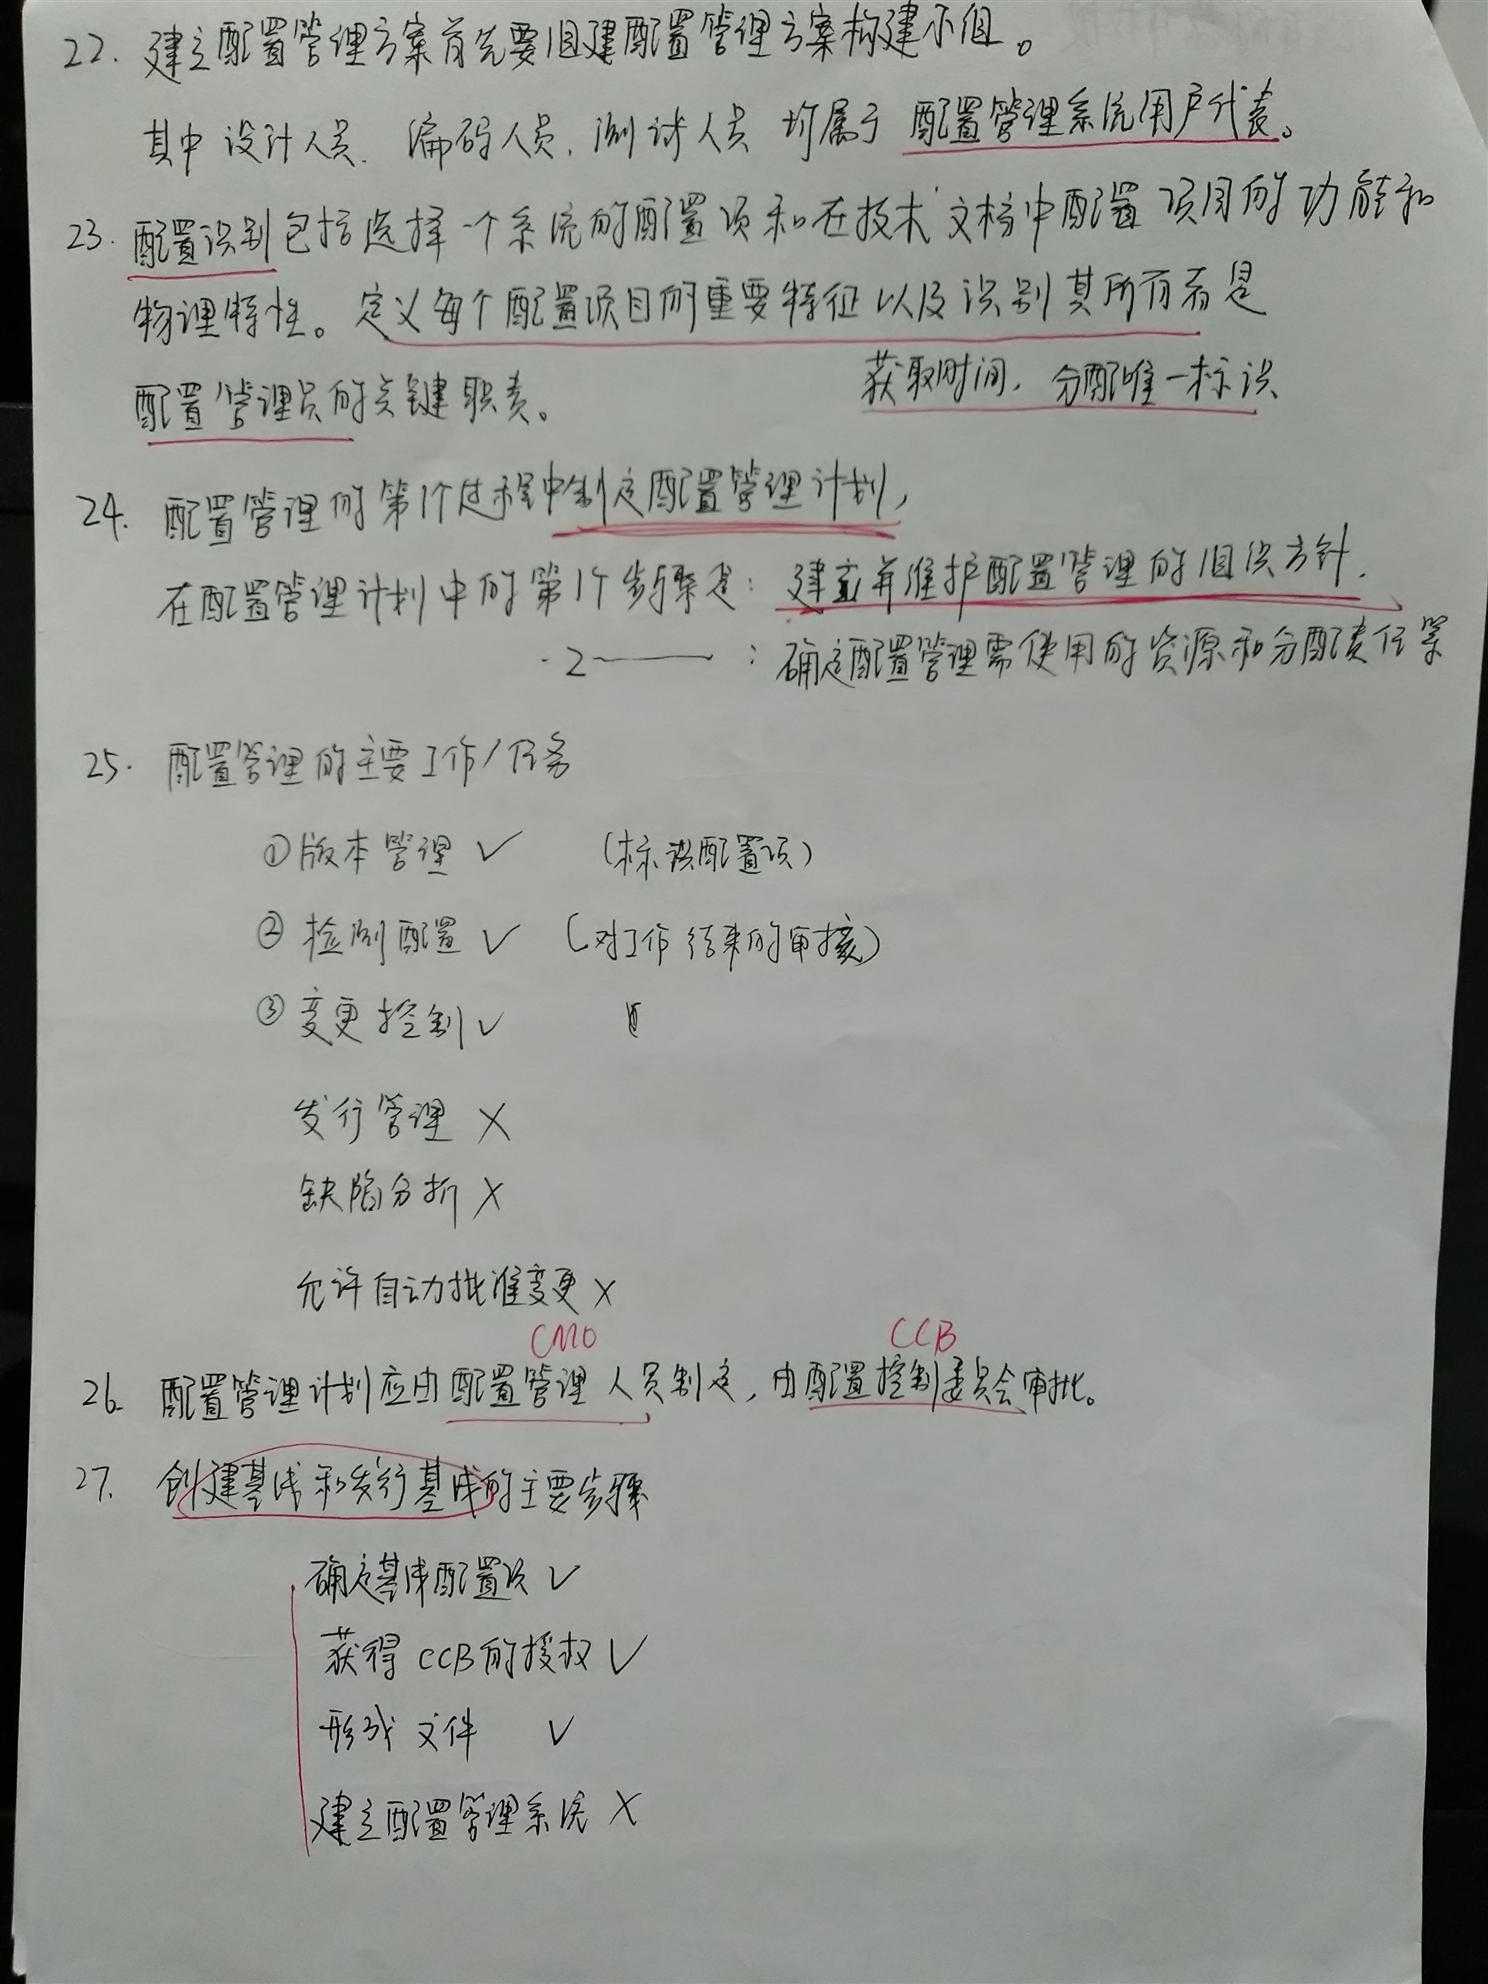 22. 建立配置管理方案首先要组建配置管理方案构建小组。
其中设计人员、编码人员、测试人员 均属于 配置管理系统用户代表。
23. 配置识别包括选择一个系统的配置项和在技术文档中配置项目的功能和
物理特性。定义每个配置项目的重要特征以及识别其所有者是
配置管理员的关键职责。
获取时间，分配唯一标识
24. 配置管理的第1个过程中制定配置管理计划，
在配置管理计划中的第1个步骤是：建立并维护配置管理的组织方针.
2———：确定配置管理需使用的资源和分配责任等
25. 配置管理的主要工作/任务
①版本管理 ✓ （标识配置项）
② 检测配置 ✓ （对工作结束的审核）
③ 变更控制 ✓
发行管理 ×
缺陷分析 ×
允许自动批准变更 ×
CMO CCB
26. 配置管理计划应由配置管理人员制定，由配置控制委员会审批。
27. 创建基线和发行基线的主要步骤
确定基线配置项 ✓
获得CCB的授权 ✓
形成文件 ✓
建立配置管理系统 ×